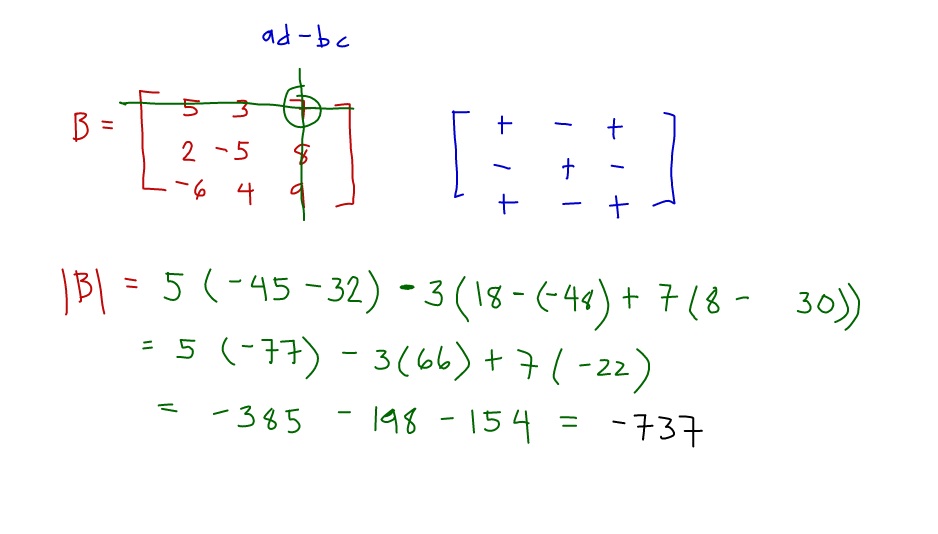 ad - bc
B = [ 5 3 7 + - +
2 -5 8 - + -
-6 4 9 ] + - +
|B| = 5 (-45 - 32) - 3(18 - (-48) + 7(8 - 30))
= 5 (-77) - 3(66) + 7(-22)
= -385 - 198 - 154 = -737